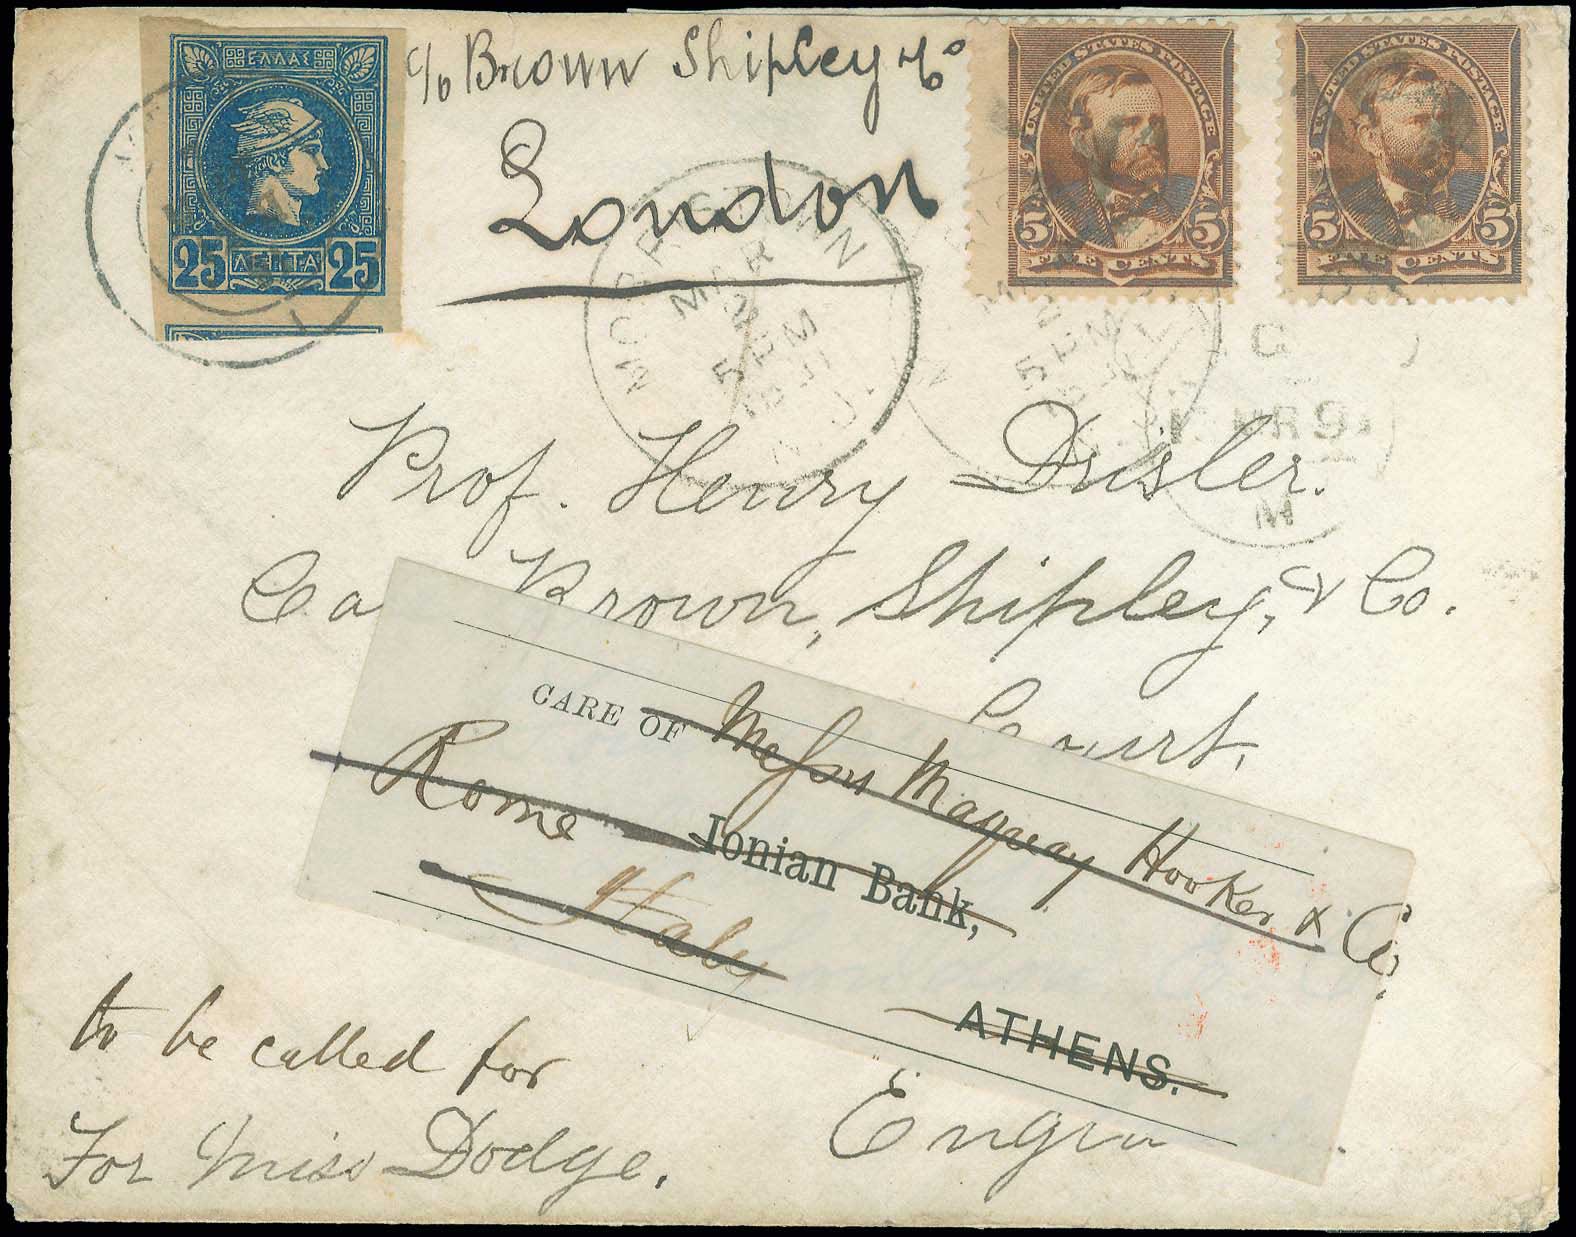 ΕΛΛΑΣ
25 ΛΕΠΤΑ 25
c/o Brown Shipley & Co
London
UNITED STATES POSTAGE
5 5
FIVE CENTS
UNITED STATES POSTAGE
5 5
FIVE CENTS
MORRISTOWN
MAR
2
5 PM
1891
N.J.
MAR
5 PM
G
MR 9
M
Prof. Henry Drisler.
Ca Brown, Shipley, & Co.
Court,
CARE OF Messrs Maquay Hooker & Co.
Rome Ionian Bank,
Italy
ATHENS.
to be called for
For Miss Dodge.